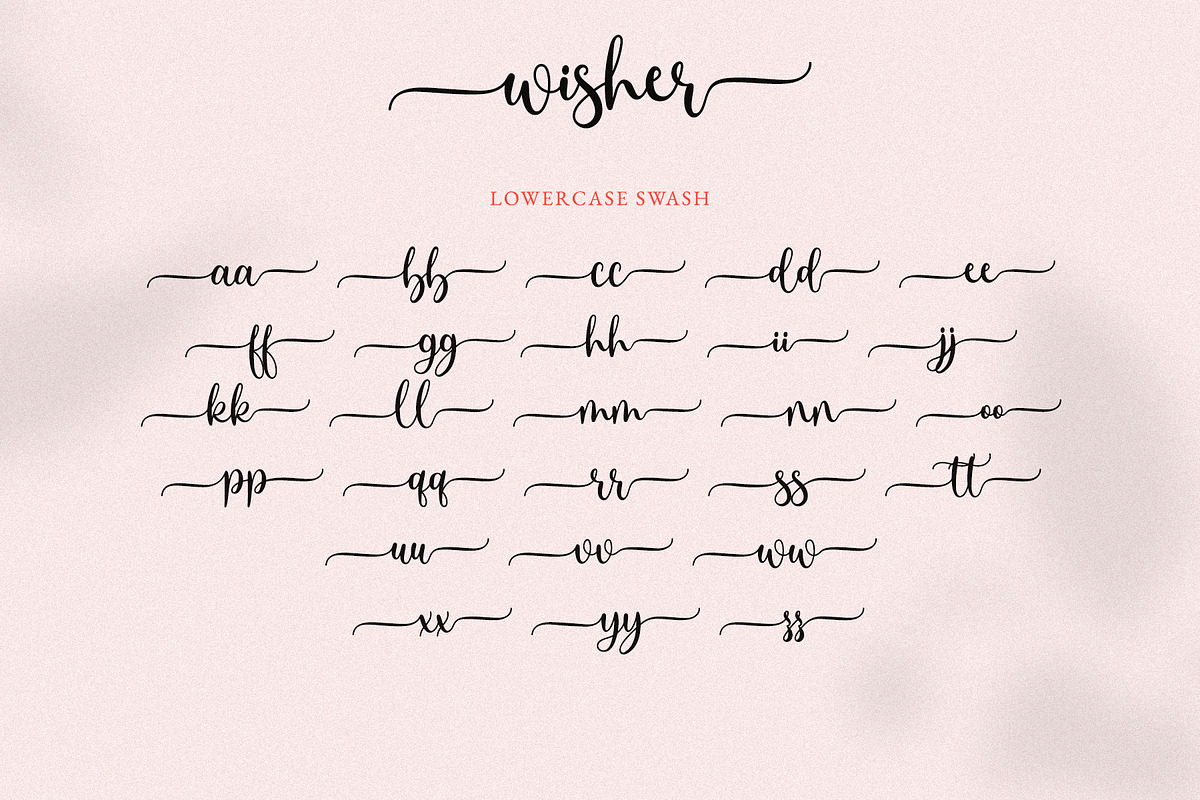 wisher
LOWERCASE SWASH
aa bb cc dd ee
ff gg hh ii jj
kk ll mm nn oo
pp qq rr ss tt
uu vv ww
xx yy zz